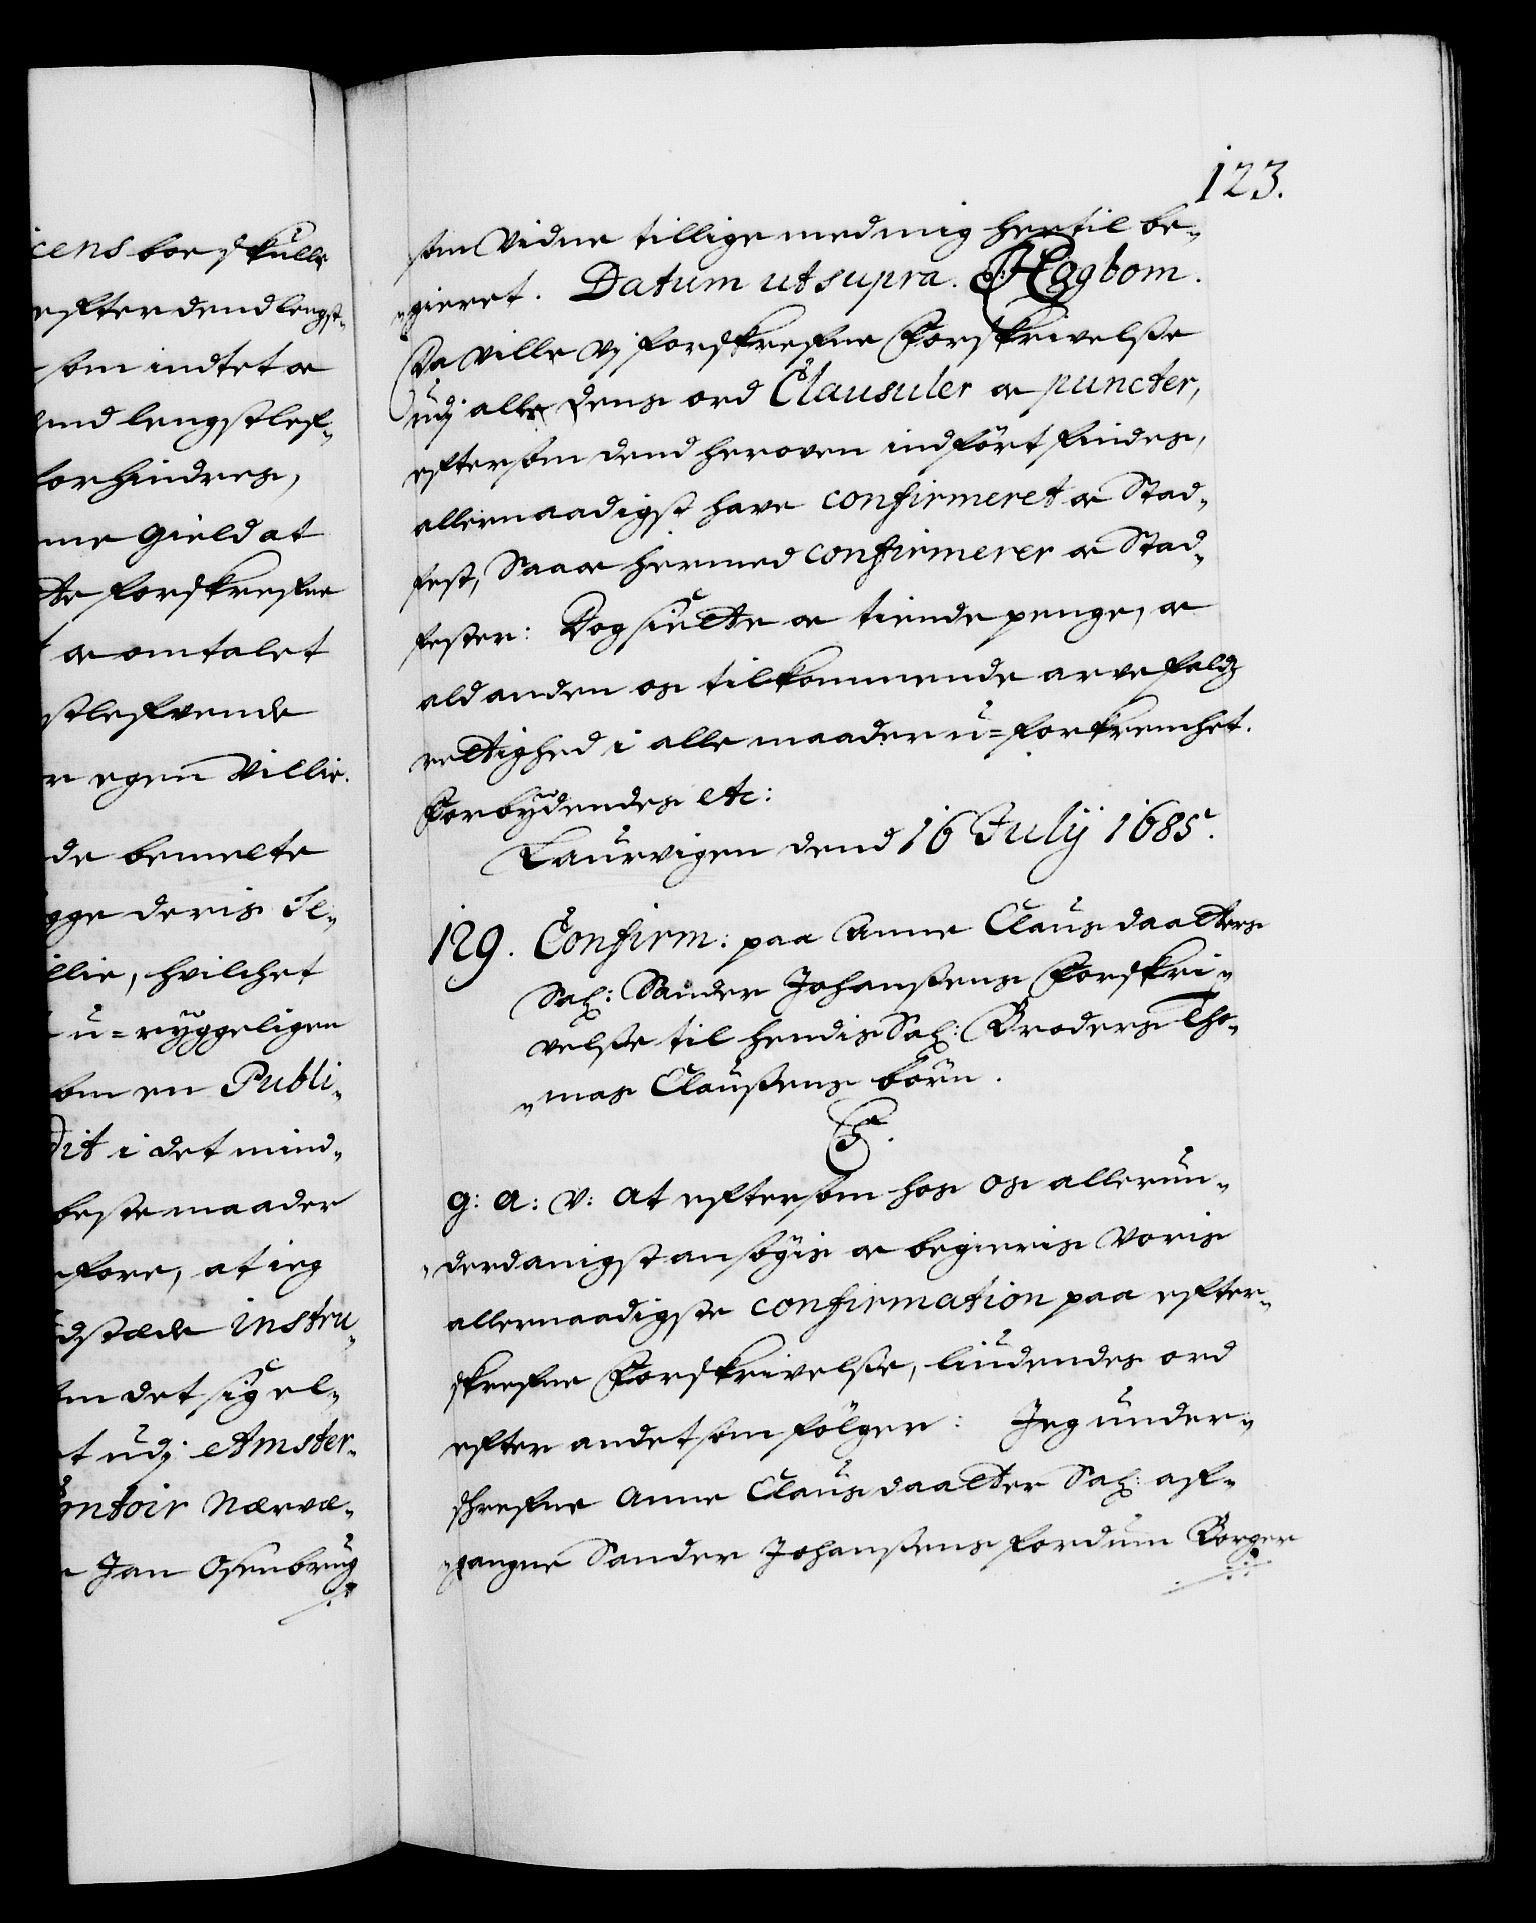 icens boe skulle
efter dend lengst-
som indtet oc
dend lengstlef-
forhindres,
me gield at
te forskrefne
oc omtalet
stlefvende
r egen Villie.
de bemelte
gge deris Te-
llie, hvilchet
u=ryggeligen
som en Publi-
dit i det mind-
beste maader
fore, at ieg
dstæde instru-
om det sig el-
t udj Amster-
ontoir Nærvæ-
Jan Osenbrug
123.
som Vidne tillige med mig hertil be-
-gieret. Datum ut supra. Hagbom.
Da ville Vj forskrefne Forskrivelsse
udj alle dens ord Clausuler oc puncter,
eftersom dend heroven indfört findes,
allernaadigst have confirmeret oc Stad-
fest, Saa oc hermed confirmerer oc Stad-
fester: Dog siette oc tiende penge, oc
ald anden os tilkommende arvefaldz
rettighed i alle maader u=forkrencket.
Forbydendes etc:
Laurvigen dend 16 Julij 1685.
129. Confirm: paa Anne Claus daatters
Sal: Sander Johanssens Forskri-
velsse til hendis Sal: Broders Tho-
-mas Claussens börn.
C5.
g: a: v: at eftersom hos os allerun-
-derdanigst ansögis oc begieris Voris
allernaadigste confirmation paa efter-
skrefne Forskrivelsse, liudendes ord
efter andet som fölger: Jeg under-
skrefne Anne Claus daatter Sal: af-
-gangne Sander Johanssens fordum Borger